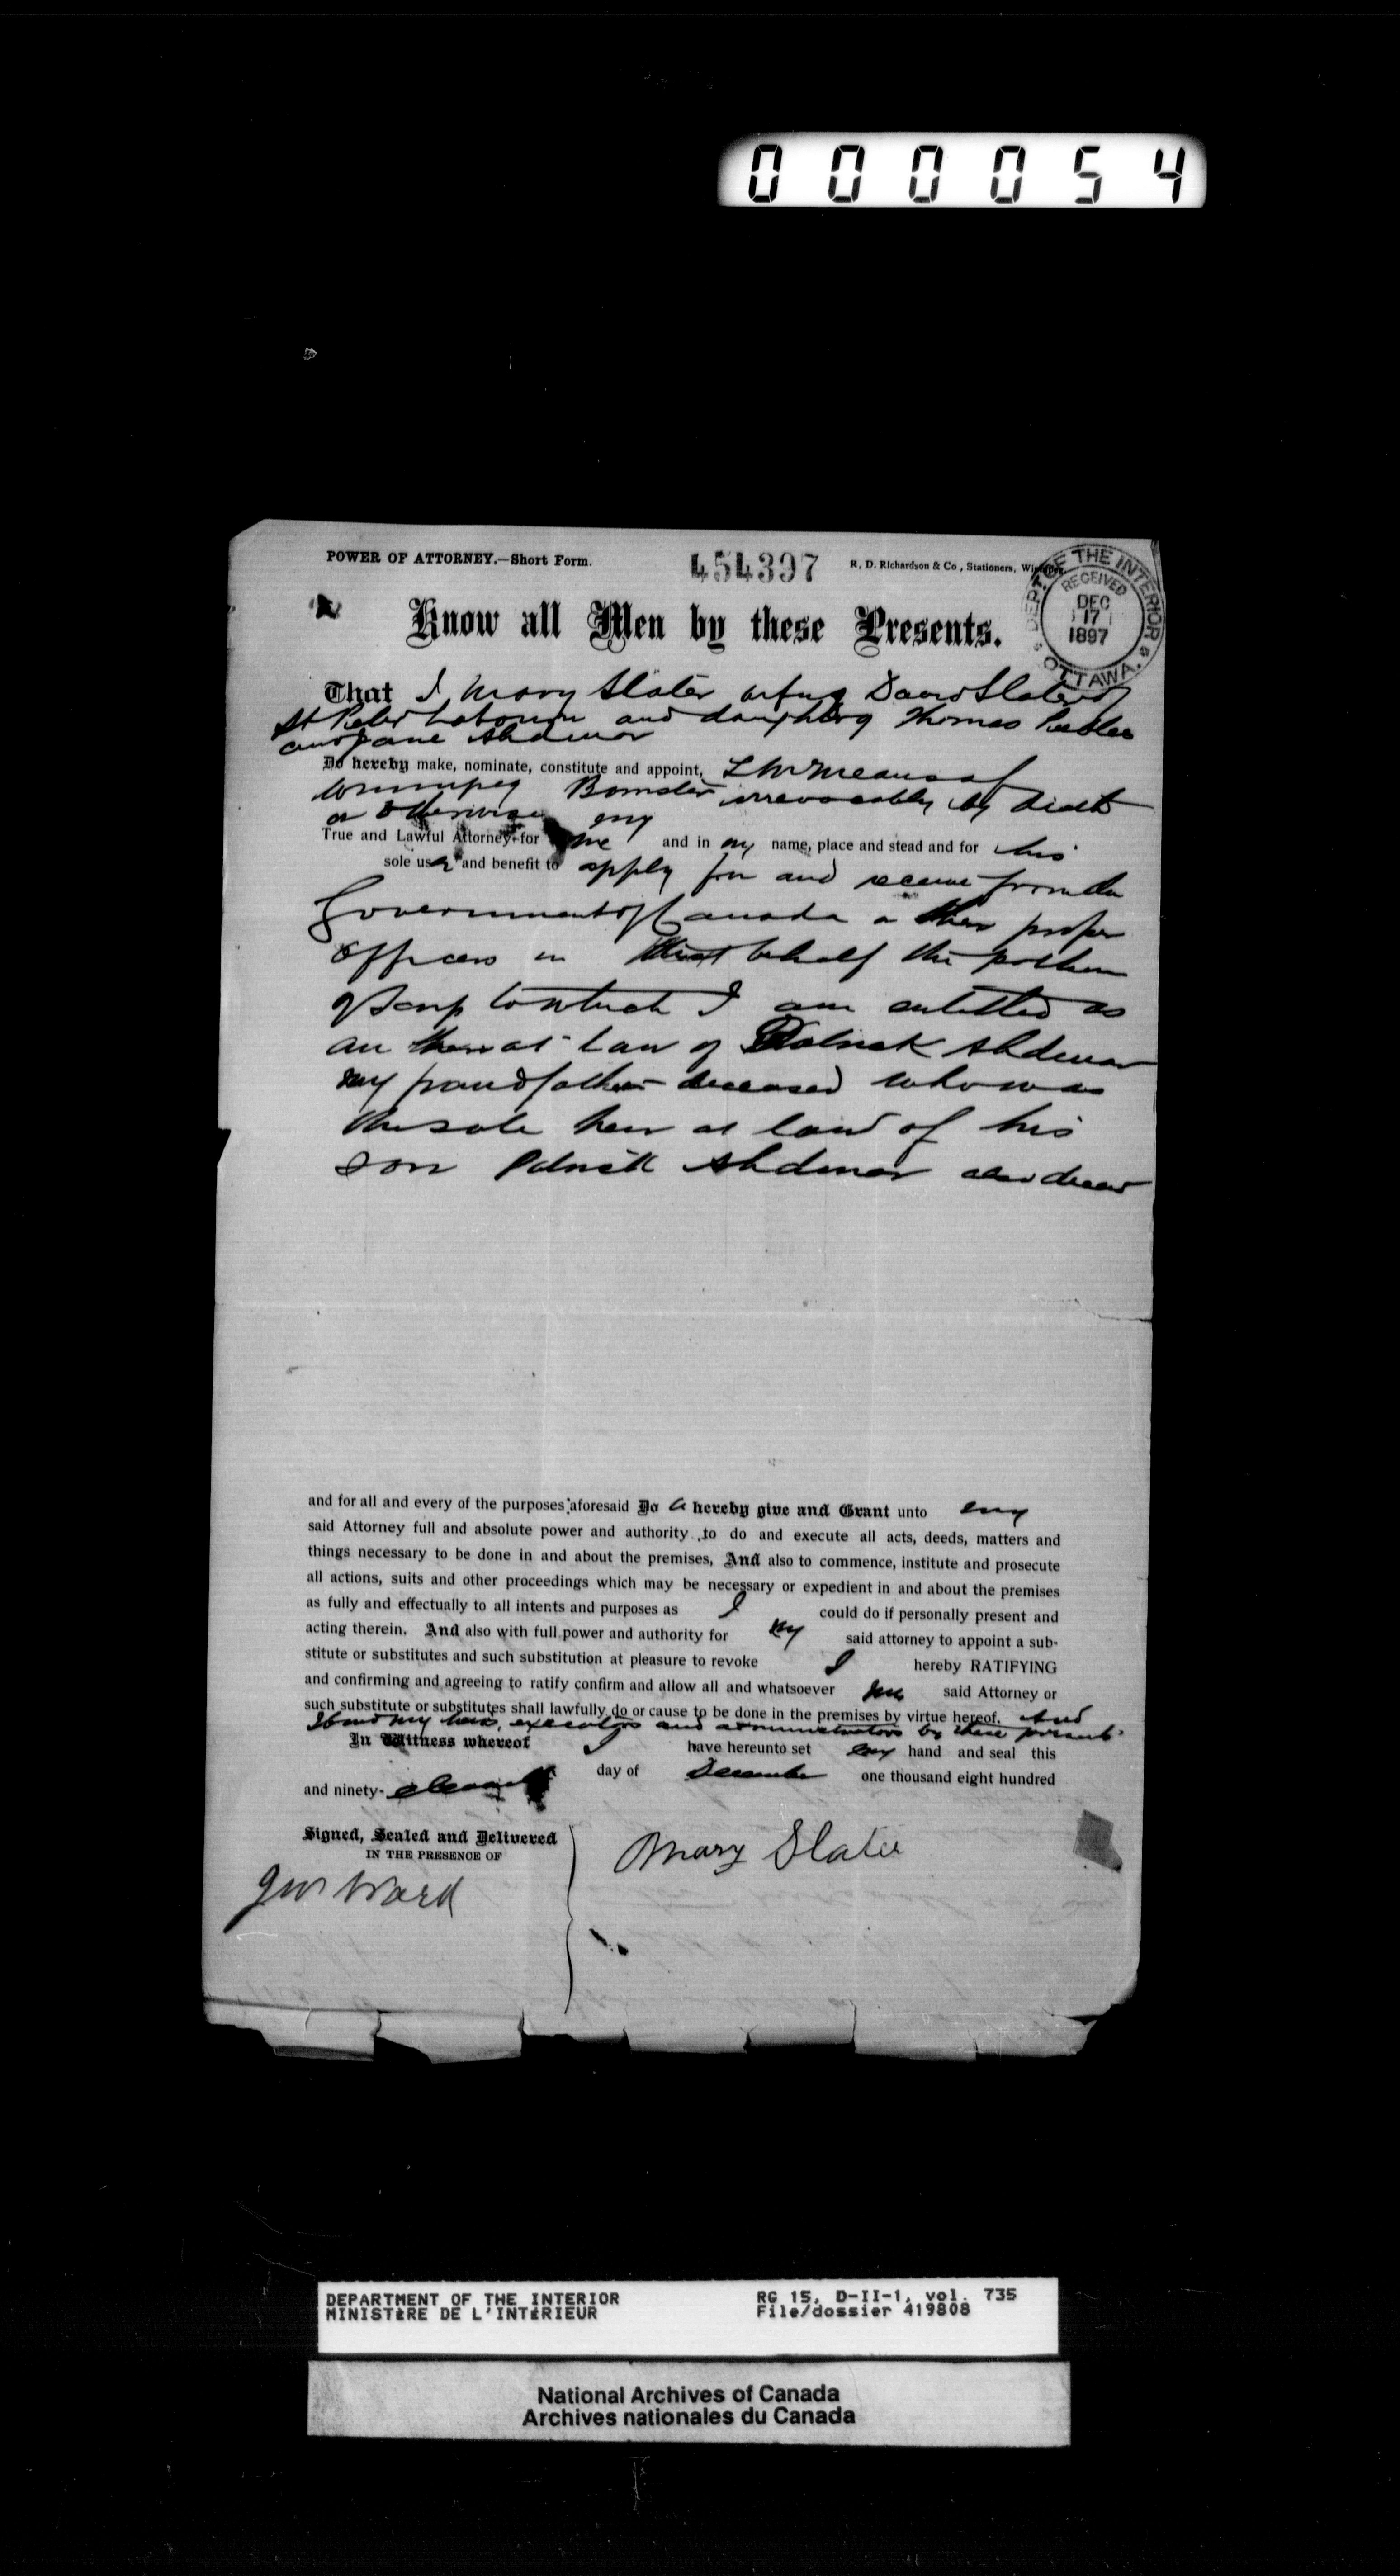 000054
POWER OF ATTORNEY.—Short Form.
454397
R. D. Richardson & Co, Stationers, Winnipeg.
DEPT. OF THE INTERIOR
RECEIVED
DEC
17
1897
OTTAWA.
Know all Men by these Presents.
That I Mary Slater wife of David Slater of
St Peter and daughter of Thomas
and Jane
Do hereby make, nominate, constitute and appoint, L M Means of
Winnipeg irrevocably by death
or otherwise my
True and Lawful Attorney for me and in my name, place and stead and for his
sole use and benefit to apply for and receive from the
Government of Canada or proper
Officers in that behalf the portion
of Scrip to which I am entitled as
an heir at Law of Patrick
my grandfather deceased who was
the sole heir at law of his
son Patrick also
and for all and every of the purposes aforesaid Do hereby give and Grant unto my
said Attorney full and absolute power and authority to do and execute all acts, deeds, matters and
things necessary to be done in and about the premises, And also to commence, institute and prosecute
all actions, suits and other proceedings which may be necessary or expedient in and about the premises
as fully and effectually to all intents and purposes as I could do if personally present and
acting therein. And also with full power and authority for my said attorney to appoint a sub-
stitute or substitutes and such substitution at pleasure to revoke I hereby RATIFYING
and confirming and agreeing to ratify confirm and allow all and whatsoever my said Attorney or
such substitute or substitutes shall lawfully do or cause to be done in the premises by virtue hereof. And
I bind my heirs, executors and administrators by these presents
In Witness whereof I have hereunto set my hand and seal this
day of December one thousand eight hundred
and ninety-
Signed, Sealed and Delivered
IN THE PRESENCE OF
Mary Slater
Ward
DEPARTMENT OF THE INTERIOR
MINISTÈRE DE L'INTÉRIEUR
RG 15, D-II-1, vol. 735
File/dossier 419808
National Archives of Canada
Archives nationales du Canada